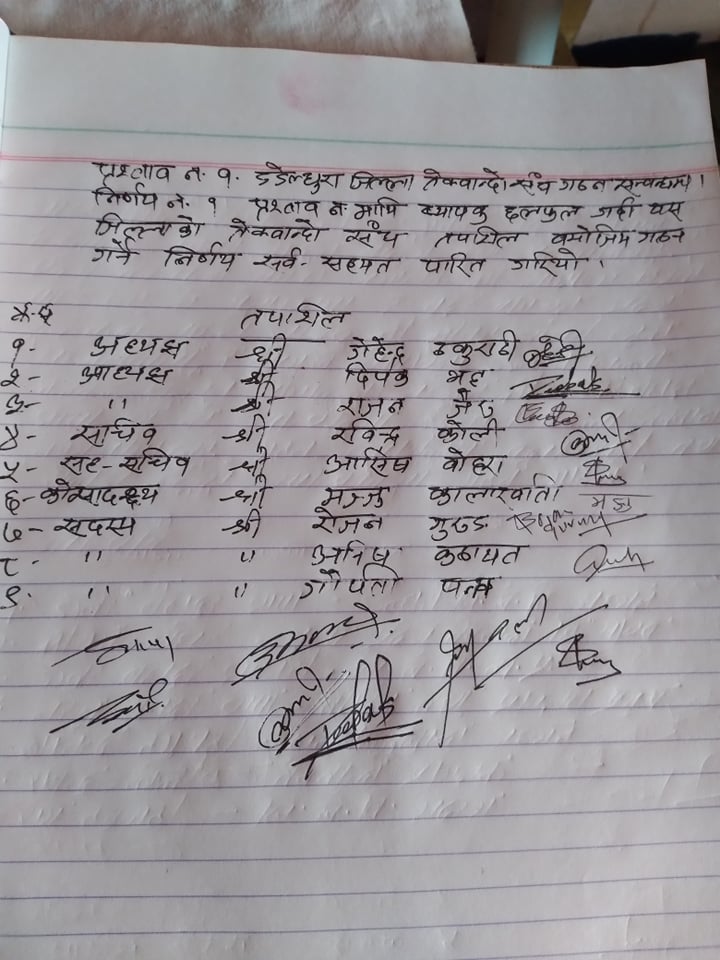 प्रश्ताव न. १. डडेल्धुरा जिल्ला तेक्वान्दो संघ गठन सम्बन्धमा।
निर्णय न. १ प्रश्ताव न. माथि ब्यापक छलफुल गर्दा यस
जिल्लाको तेक्वान्दो संघ तपाशिल बमोजिम गठन
गर्ने निर्णय सर्व-सहमत पारित गरियो।
क्र.स तपाशिल
१- अध्यक्ष श्री जेहेन्द्र ठकुराठी
२- उपाध्यक्ष श्री दिपक भट्ट Deepak
३- " श्री राजन
४- सचिव श्री रविन्द्र कोली
५- सह-सचिव श्री आसिष बोहरा
६- कोषाध्यक्ष श्री मञ्जु
७- सदस्य श्री रोजन गुरुङ
८- " " अनिष कठायत
९. " " पन्त
Deepak